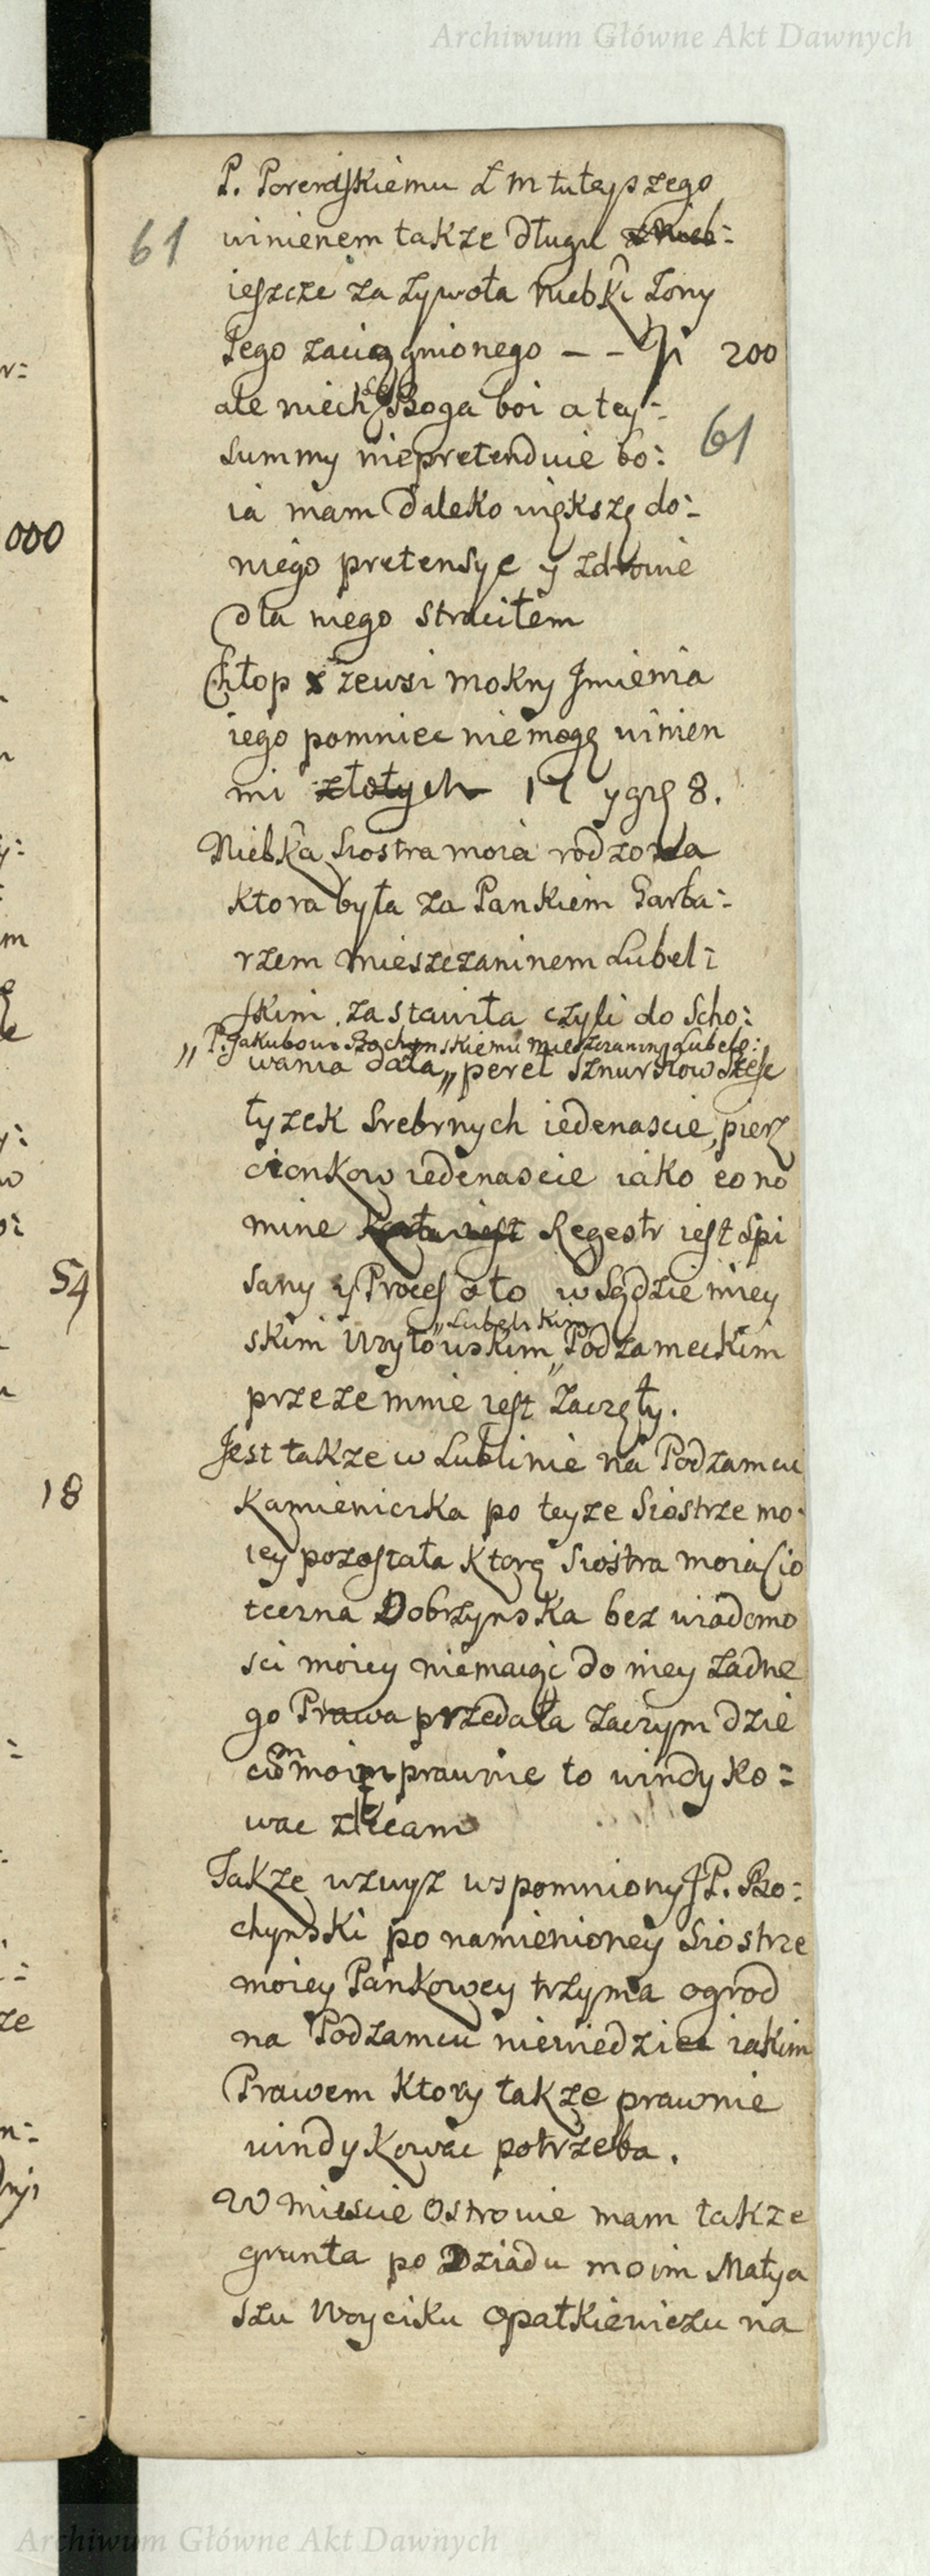 Archiwum Główne Akt Dawnych
P. Porendskiemu L m tuteyszego
61
winienem także długu
ieszcze za zywota niebki zony
Jego zaciągnionego - - 200
ale niech se Boga boi a tey:
61
Summy niepretenduie bo:
ia mam daleko większę do:
niego pretensye y zdrowie
dla niego straciłem
Chłop z zewsi mokry Jmienia
iego pomniec niemogę winien
mi złotych 17 y grs 8.
Niebka Siostra moia rodzona
ktora była za Pankiem Garba:
rzem mieszczaninem Lubel:
skim zastawiła czyli do Scho:
„ P. Jakubowi Bochynskiemu mieszczaninj Lubels:
wania dała „ pereł sznurkow szesc
łyzek Srebrnych iedenascie, pierz
cionkow iedenascie iako eo no
mine Regestr iest Spi
sany y Proces o to w Sądzie miey
„Lubelskim
skim Wóytowskim „ Podzameckim
przezemnie iest zaczęty.
Jest także w Lublinie na Podzamcu
Kamieniczka po teyze Siostrze mo:
iey pozostała ktorę Siostra moia Cio
teczna Dobrzynska bez wiadomo
sci moiey niemaiąc do niey zadne
go Prawa przedała zaczym dzie
ciom moim prawnie to windyko:
wac zlecam
Także wzwyz wspomniony JP. Bo:
chynski po namienioney Siostrze
moiey Pankowey trzyma ogrod
na Podzamcu niewiedziec iakim
Prawem ktory także prawnie
windykowac potrzeba.
W miescie Ostrowie mam także
grunta po Dziadu moim Matya
szu Woyciku Opatkiewiczu na
000
54
18
Archiwum Główne Akt Dawnych